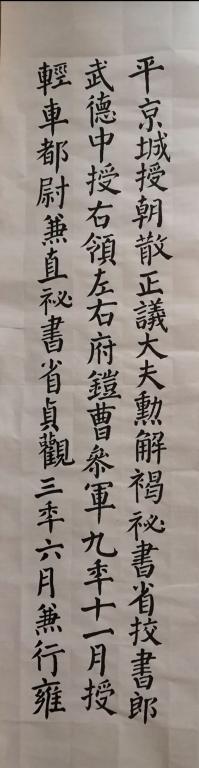 平京城授朝散正議大夫勲解褐祕書省挍書郎
武德中授右領左右府鎧曹叅軍九秊十一月授
輕車都尉兼直祕書省貞觀三秊六月兼行雍